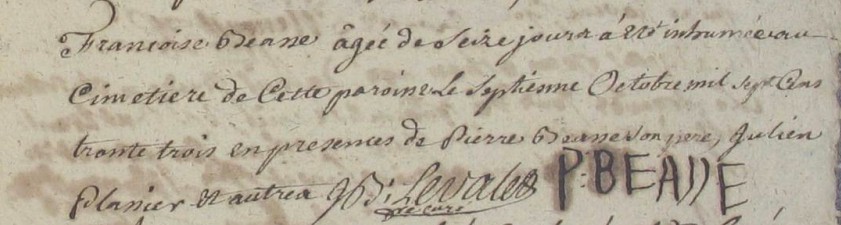 Françoise Beasse âgée de Seize jours à été inhumée au
Cimetiere de Cette paroisse Le Septiesme Octobre mil Sept Cens
trante trois en presences de Pierre Beasse Son pere, Julien
Planier et autres
P: BEASSE